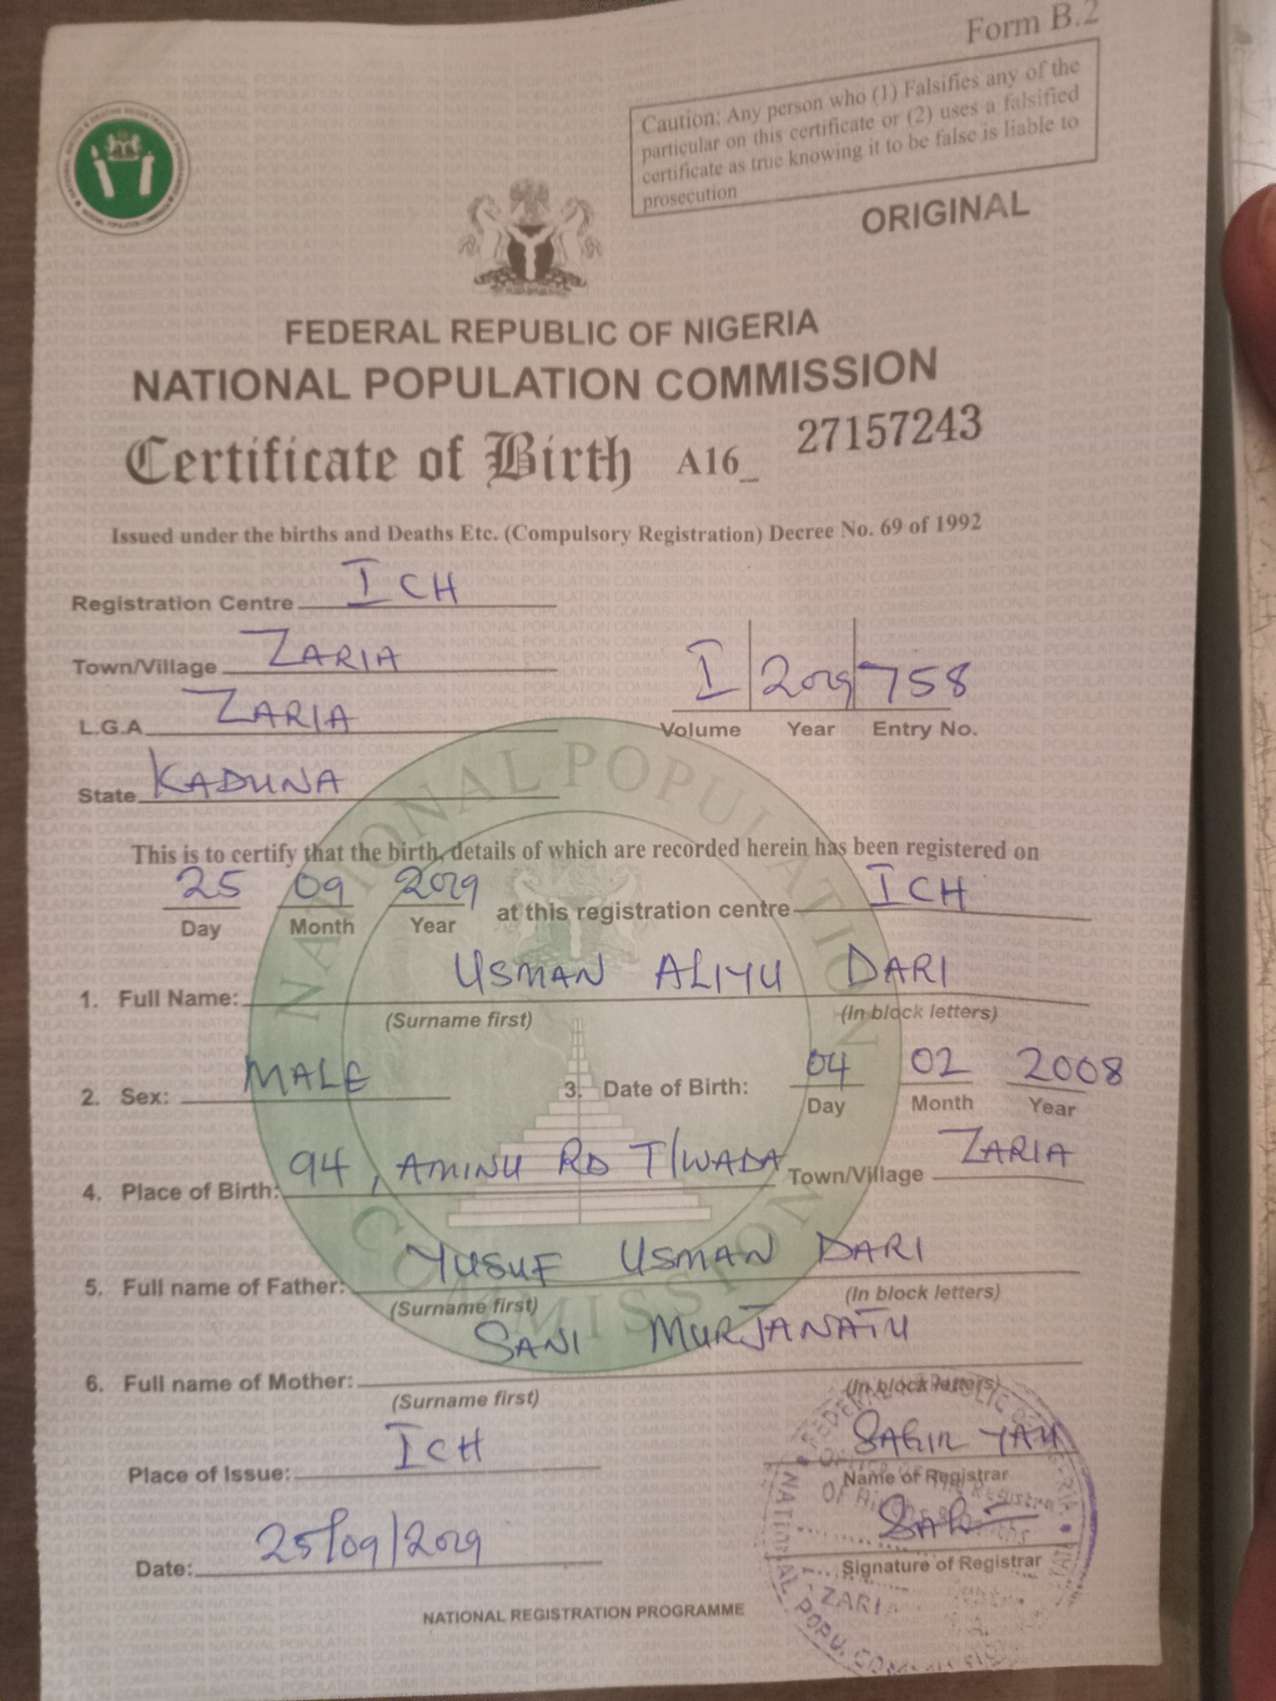 Form B.2
Caution: Any person who (1) Falsifies any of the
particular on this certificate or (2) uses a falsified
certificate as true knowing it to be false is liable to
prosecution
ORIGINAL
FEDERAL REPUBLIC OF NIGERIA
NATIONAL POPULATION COMMISSION
Certificate of Birth A16_ 27157243
Issued under the births and Deaths Etc. (Compulsory Registration) Decree No. 69 of 1992
Registration Centre ICH
Town/Village ZARIA
L.G.A ZARIA
I 2019 758
Volume Year Entry No.
State KADUNA
This is to certify that the birth, details of which are recorded herein has been registered on
25 09 2019 at this registration centre ICH
Day Month Year
1. Full Name: USMAN ALIYU DARI
(Surname first) (In block letters)
2. Sex: MALE 3. Date of Birth: 04 02 2008
Day Month Year
4. Place of Birth: 94, AMINU RD T/WADA Town/Village ZARIA
5. Full name of Father: YUSUF USMAN DARI
(Surname first) (In block letters)
6. Full name of Mother: SANI MURJANATU
(Surname first) (In block letters)
Place of Issue: ICH
SAGIR YAU
Name of Registrar
Date: 25/09/2019
Signature of Registrar
NATIONAL REGISTRATION PROGRAMME
NATIONAL POPULATION COMMISSION
ZARIA